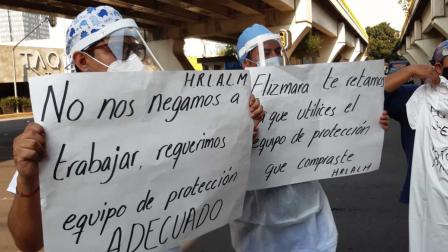 HRLALM
No nos negamos a
trabajar, requerimos
equipo de protección
ADECUADO
Elizmara te retamos
a que utilices el
equipo de protección
que compraste
HRLALM